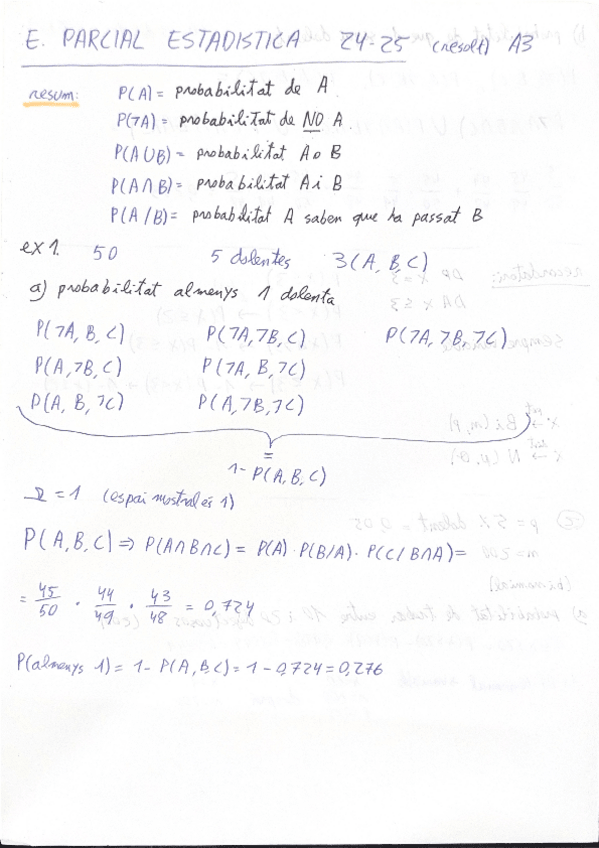 E. PARCIAL ESTADISTICA 24-25 (resolt) A3
resum: P(A) = probabilitat de A
P(7A) = probabilitat de NO A
P(A∪B) = probabilitat A o B
P(A∩B) = probabilitat A i B
P(A/B) = probabilitat A saben que ha passat B
ex 1. 50 5 dolentes 3(A, B, C)
a) probabilitat almenys 1 dolenta
P(7A, B, C) P(7A, 7B, C) P(7A, 7B, 7C)
P(A, 7B, C) P(7A, B, 7C)
P(A, B, 7C) P(A, 7B, 7C)
=
1 - P(A, B, C)
Ω = 1 (espai mostral és 1)
P(A, B, C) ⇒ P(A∩B∩C) = P(A) · P(B/A) · P(C/B∩A) =
= 45/50 · 44/49 · 43/48 = 0,724
P(almenys 1) = 1 - P(A, B, C) = 1 - 0,724 = 0,276